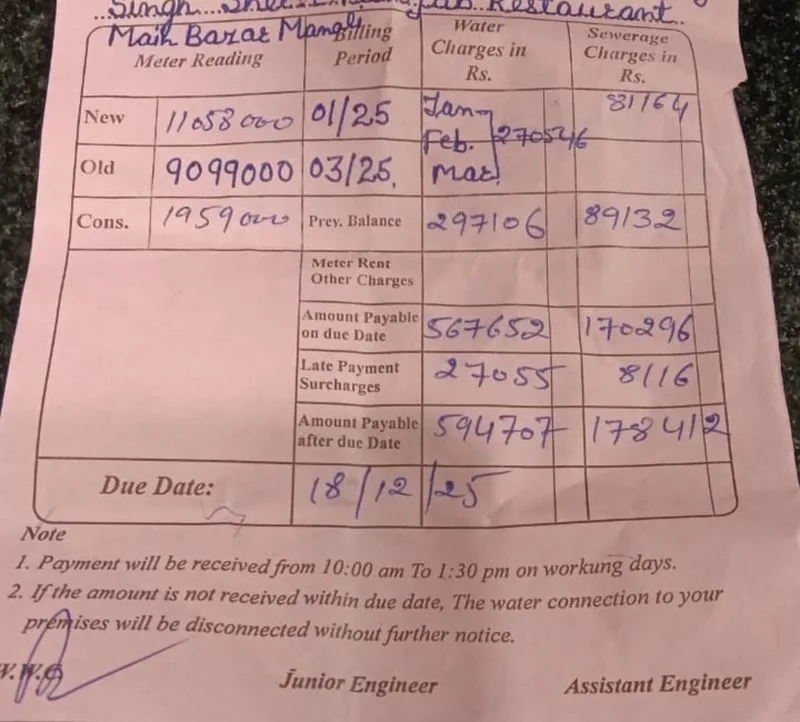 Singh Restaurant.
Main Bazar Mangl
Meter Reading Billing Period Water Charges in Rs. Sewerage Charges in Rs.
New 11058000 01/25 Jan 81164
Feb. 270546
Old 9099000 03/25, Mar
Cons. 1959000 Prev. Balance 297106 89132
Meter Rent
Other Charges
Amount Payable on due Date 567652 170296
Late Payment Surcharges 27055 8116
Amount Payable after due Date 594707 178412
Due Date: 18/12/25
Note
1. Payment will be received from 10:00 am To 1:30 pm on workung days.
2. If the amount is not received within due date, The water connection to your
premises will be disconnected without further notice.
Junior Engineer Assistant Engineer